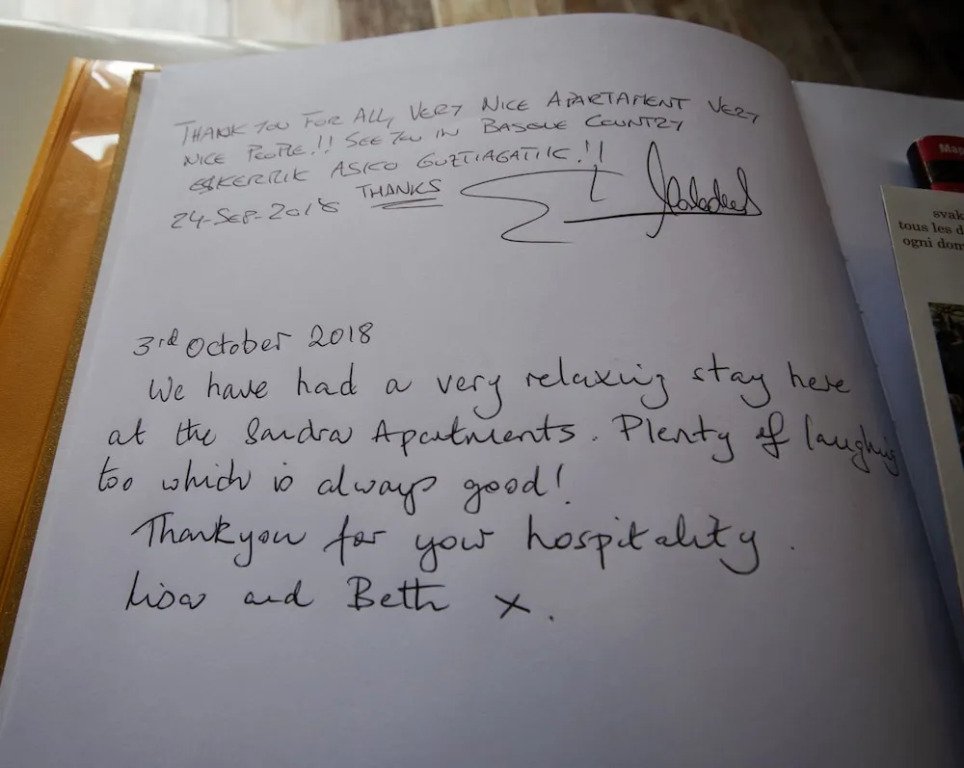 THANK YOU FOR ALL, VERY NICE APARTAMENT VERY
NICE PEOPLE!! SEE YOU IN BASQUE COUNTRY
ESKERRIK ASKO GUZTIAGATIK!!
24-SEP-2018 THANKS
3rd October 2018
We have had a very relaxing stay here
at the Sandra Apartments. Plenty of laughing
too which is always good!
Thankyou for your hospitality.
Lisa and Beth x.
Mag
svak
tous les d
ogni dom